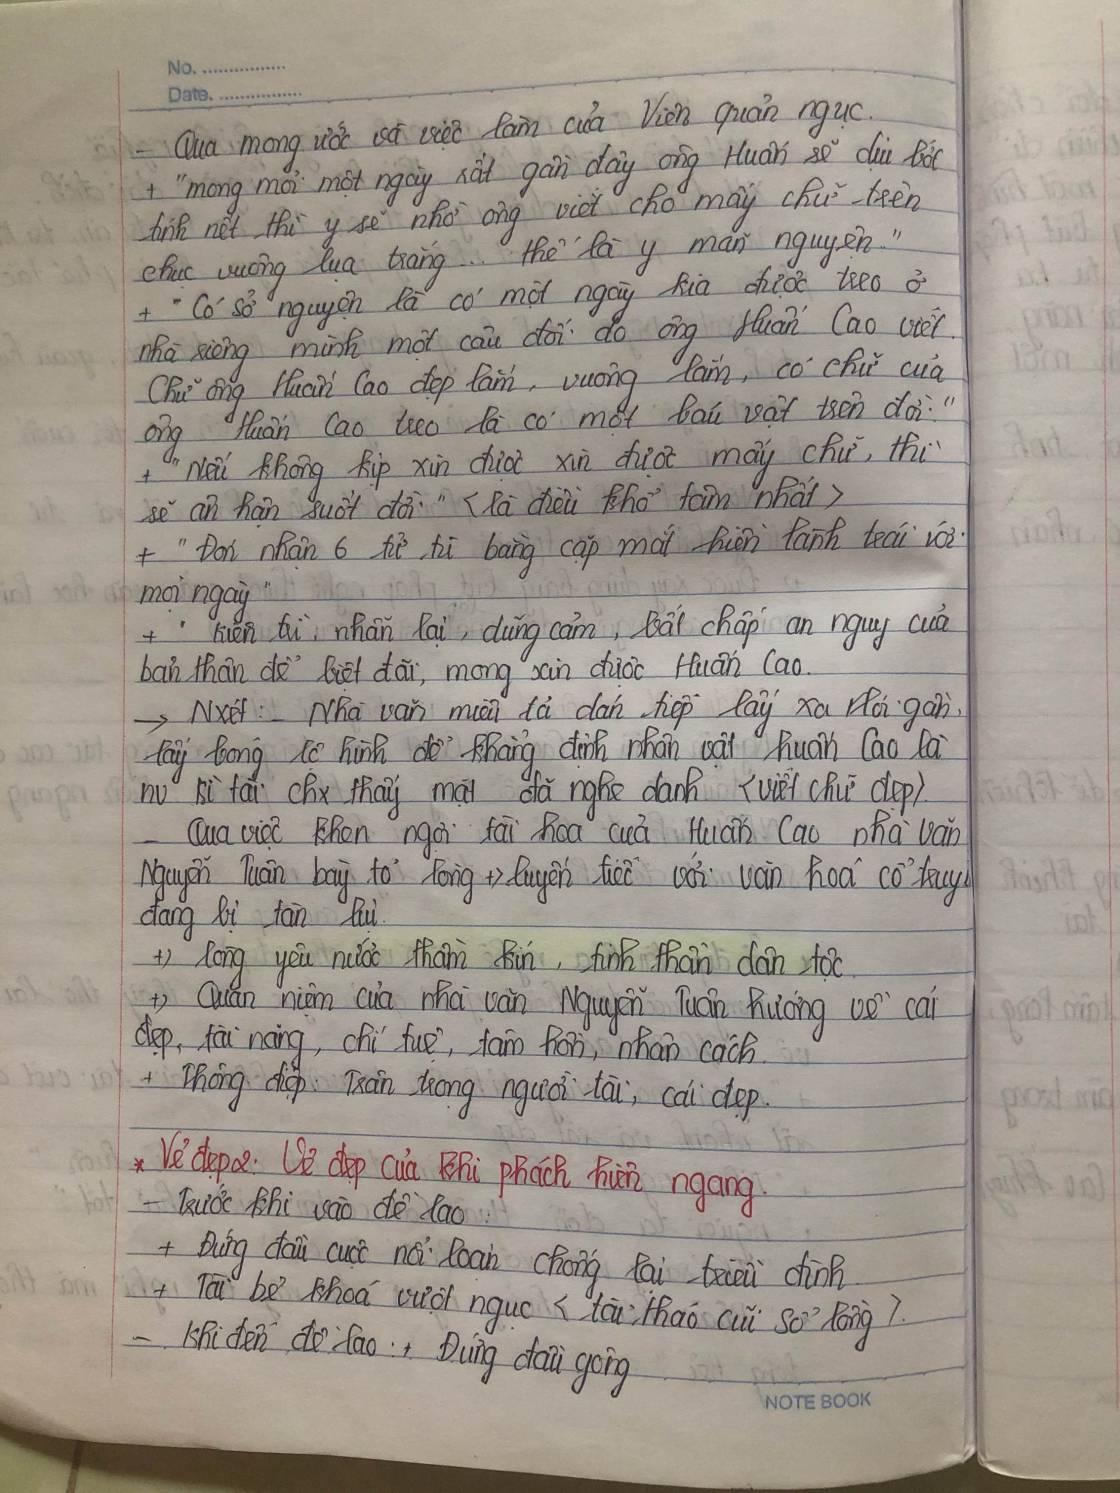 No. ................
Date. ................
- Qua mong ước và việc làm của Viên quản ngục.
+ "mong mỏi một ngày rất gần đây ông Huấn sẽ dịu bớt
tính nết thì y sẽ nhờ ông viết cho mấy chữ trên
chục vuông lụa trắng... thế là y mãn nguyện."
+ "Có sở nguyện là có một ngày kia được treo ở
nhà riêng mình một câu đối do ông Huấn Cao viết.
Chữ ông Huấn Cao đẹp lắm, vuông lắm, có chữ của
ông Huấn Cao treo là có một báu vật trên đời."
+ "Nếu không kịp xin được xin được mấy chữ, thì
sẽ ân hận suốt đời." <là điều khổ tâm nhất>
+ "Đón nhận 6 tử tù bằng cặp mắt hiền lành trái với
mọi ngày"
+ " kiên trì, nhẫn lại, dũng cảm, bất chấp an nguy của
bản thân để biệt đãi, mong xin được Huấn Cao.
-> Nxét: - Nhà văn miêu tả dán tiếp lấy xa nói gần,
lấy bóng lộ hình để khẳng định nhân vật huấn Cao là
nv kì tài chx thấy mặt đã nghe danh <viết chữ đẹp>
- Qua việc khen ngợi tài hoa của Huấn Cao nhà văn
Nguyễn Tuân bày tỏ lòng +> luyến tiếc với văn hoá cổ truyề
đang bị tàn lụi.
+> lòng yêu nước thầm kín, tinh thần dân tộc
+> Quan niệm của nhà văn Nguyễn Tuân hướng về cái
đẹp, tài năng, chí tuệ, tâm hồn, nhân cách.
+ Thông điệp: Trân trọng người tài, cái đẹp.
* Vẻ đẹp 2: Vẻ đẹp của khi phách hiên ngang.
- Trước khi vào đề lao:
+ Đứng đầu cuộc nổi loạn chống lại triều đình
+ Tài bẻ khoá vượt ngục < tài tháo cũi sổ lồng>.
- Khi đến đề lao: + Đứng đầu gông
NOTE BOOK